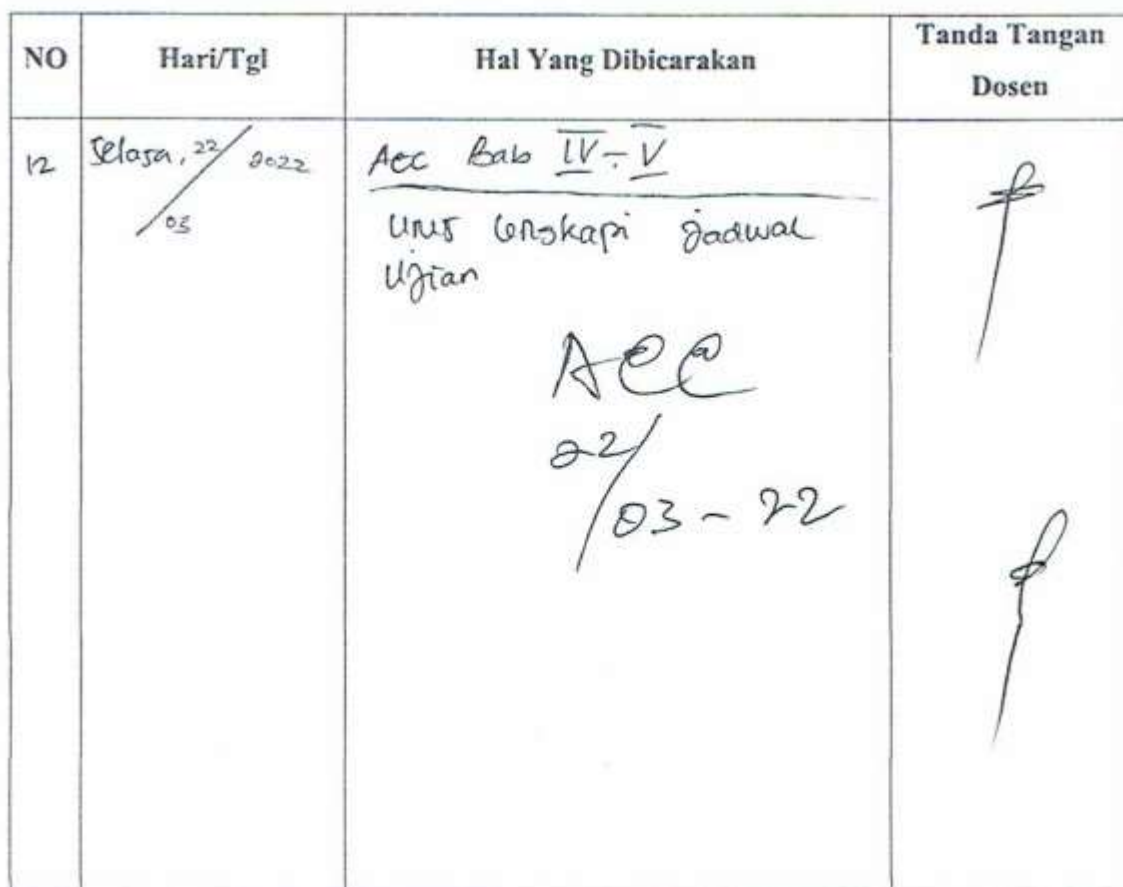 NO Hari/Tgl Hal Yang Dibicarakan Tanda Tangan Dosen
12 Selasa, 22/03 2022 Acc Bab IV - V
lengkapi jadwal
Ujian
ACC
22/03 - 22